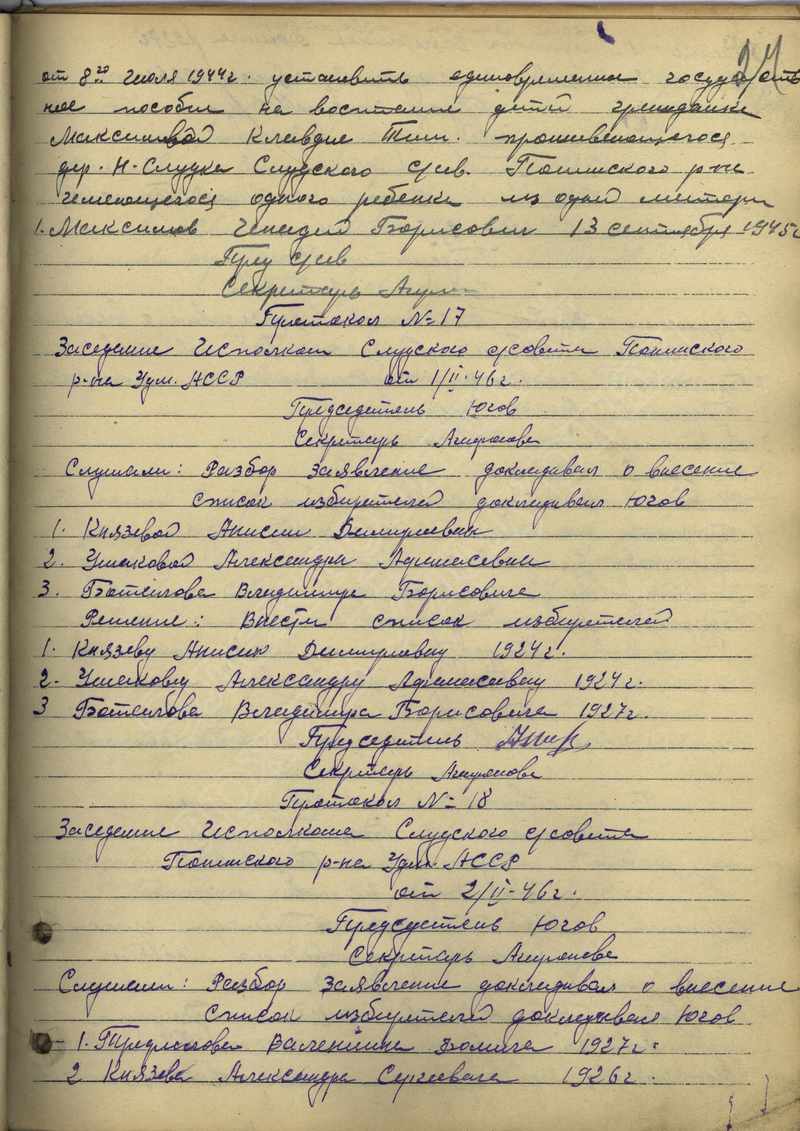 24
от 8го Июля 1944 г. установить единовременное государств
ное пособие на воспитание детей гражданке
Максимовой Клавдие Тим. проживающегося
дер. Н-Слудка Слудского с/сов. р-на
имеющегося одного ребенка из одной матери
1. Максимов Генадий Борисович 13 сентября 1945 г
Пред с/сов
Секретарь
Протокол № 17
Заседание Исполком Слудского с/совета
р-на Удм. АССР от 1/II-46 г.
Председатель Югов
Секретарь
Слушали: Разбор Заявление докладывал о внесение
список избирателей докладывал Югов
1. Князевой Анисии
2. Ушаковой Александра Афанасевна
3. Владимира Борисовича
Решение: Внести список избирателей
1. Князеву Анисию 1924 г.
2. Ушакову Александру Афанасевну 1924 г.
3 Владимира Борисовича 1927 г.
Председатель
Секретарь
Протокол № 18
Заседание Исполкома Слудского с/совета
р-на Удм. АССР
от 2/II-46 г.
Председатель Югов
Секретарь
Слушали: Разбор Заявление докладывал о внесение
список избирателей докладывал Югов
1. 1927 г.
2 Князева Александра Сергеевича 1926 г.